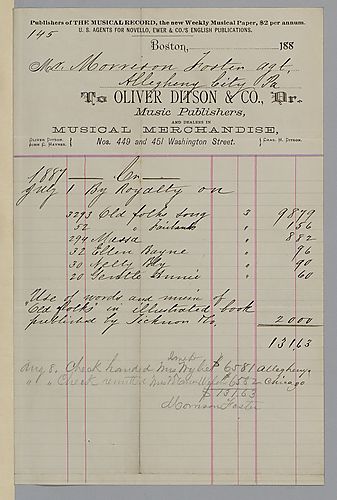 Publishers of THE MUSICAL RECORD, the new Weekly Musical Paper, $2 per annum.
U. S. AGENTS FOR NOVELLO, EWER & CO.'S ENGLISH PUBLICATIONS.
145
Boston, 188
M Morrison Foster agt,
Allegheny City Pa
To OLIVER DITSON & CO., Dr.
Music Publishers,
AND DEALERS IN
MUSICAL MERCHANDISE,
OLIVER DITSON.
JOHN C. HAYNES.
Nos. 449 and 451 Washington Street.
CHAS. H. DITSON.
1881 Cr
July 1 By Royalty on
3293 Old folks song 3 98 79
52 " Fairbank " 1 56
294 Massa " 8 82
32 Ellen Bayne " 96
30 Nelly Bly " 90
20 Gentle Annie " 60
Use of words and music of
"Old folks" in illustrated book
published by Ticknor & Co. 20 00
131 63
Aug 8. Check handed Mrs Wyly $65 81 Allegheny.
" " Check remitted Mrs $65 82 Chicago
$131.63
Morrison Foster